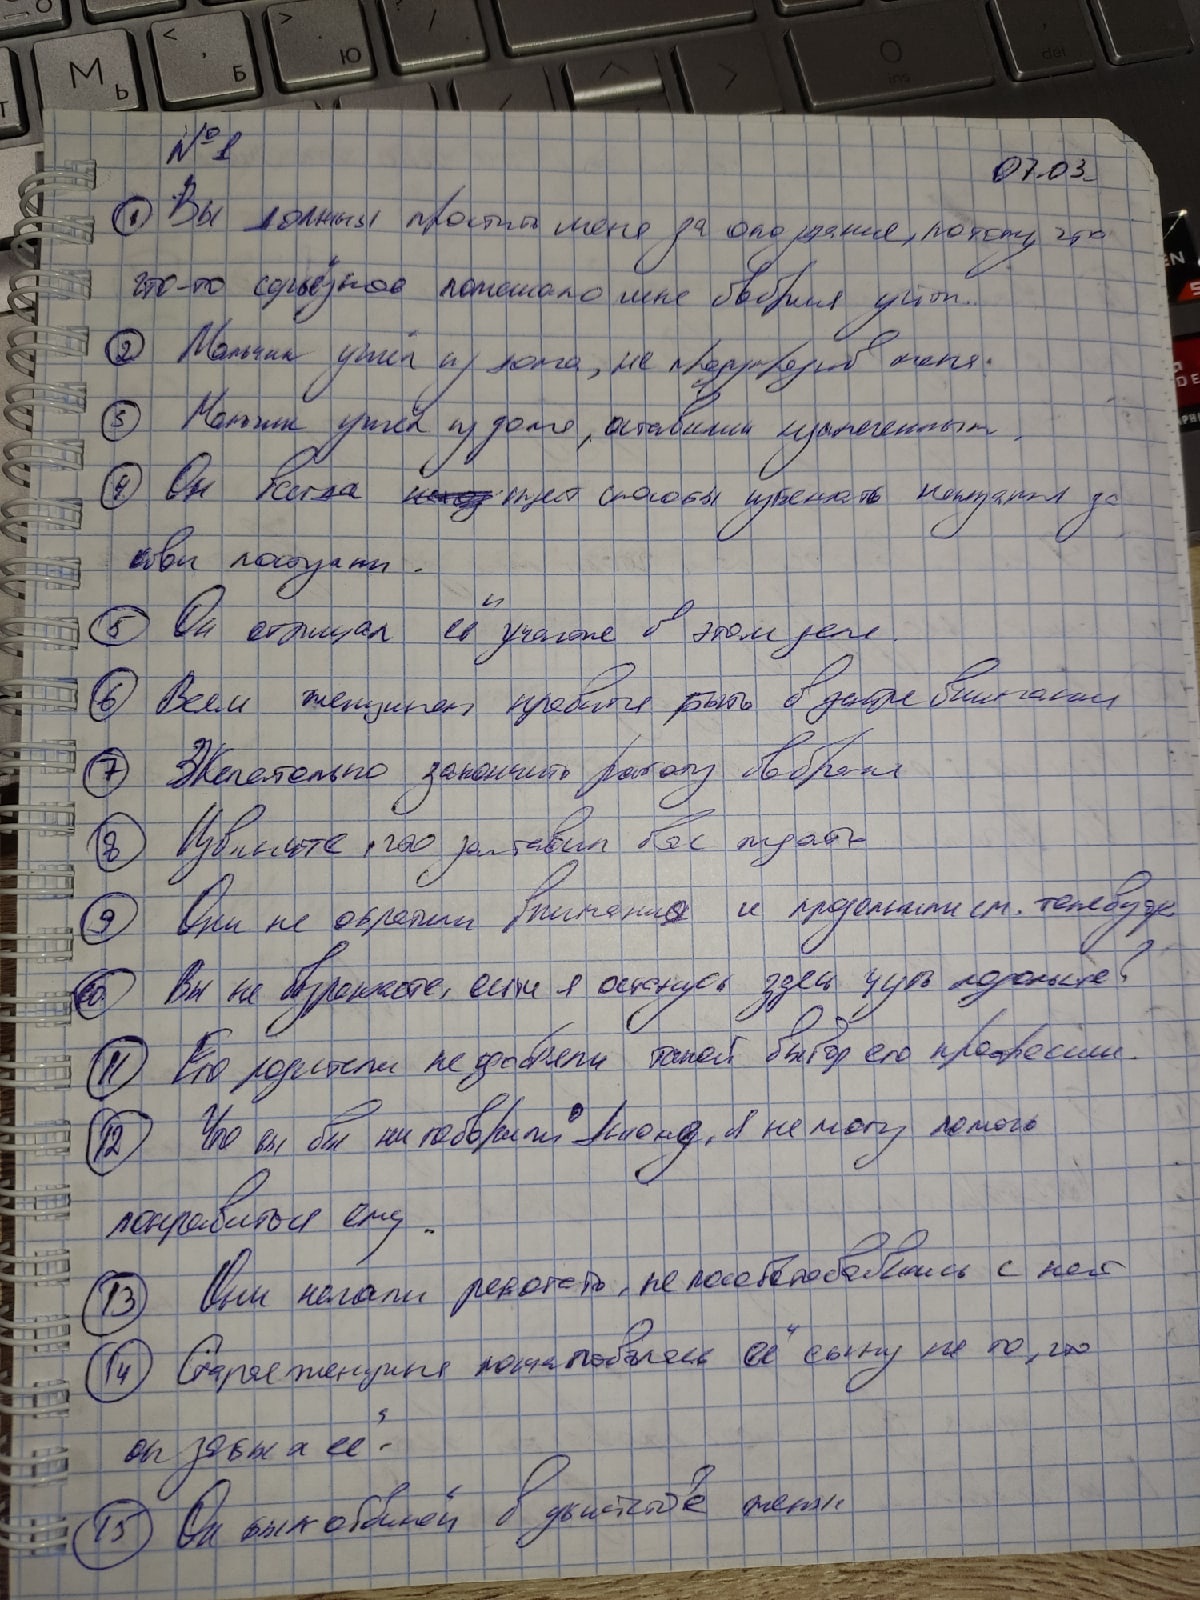 М
Ь
Б
Ю
ins
del
№1
07.03.
① Вы должны простить меня за опоздание, потому что
что-то серьёзное помешало мне вовремя
② Мальчик ушёл из дома, не предупредив меня.
3 Мальчик ушёл из дома, оставшись незамеченным.
4 Он всегда ищет способы избежать наказания за
свои поступки.
5 Он отрицал её участие в этом деле.
6 Всем женщинам нравится быть в центре внимания
7 Желательно закончить работу вовремя
8 Извините, что заставил вас ждать
9 Они не обратили внимания и продолжили см. телевизор
10 Вы не возражаете, если я останусь здесь чуть подольше?
11 Его родители не одобряли такой выбор его профессии.
12 Что бы вы ни говорили о я не могу помочь
понравиться ему.
13 Они начали работать, не посоветовавшись с ней
14 Старая женщина пожаловалась её сыну на то, что
он забыл её.
15 Он был обвинён в убийстве жены